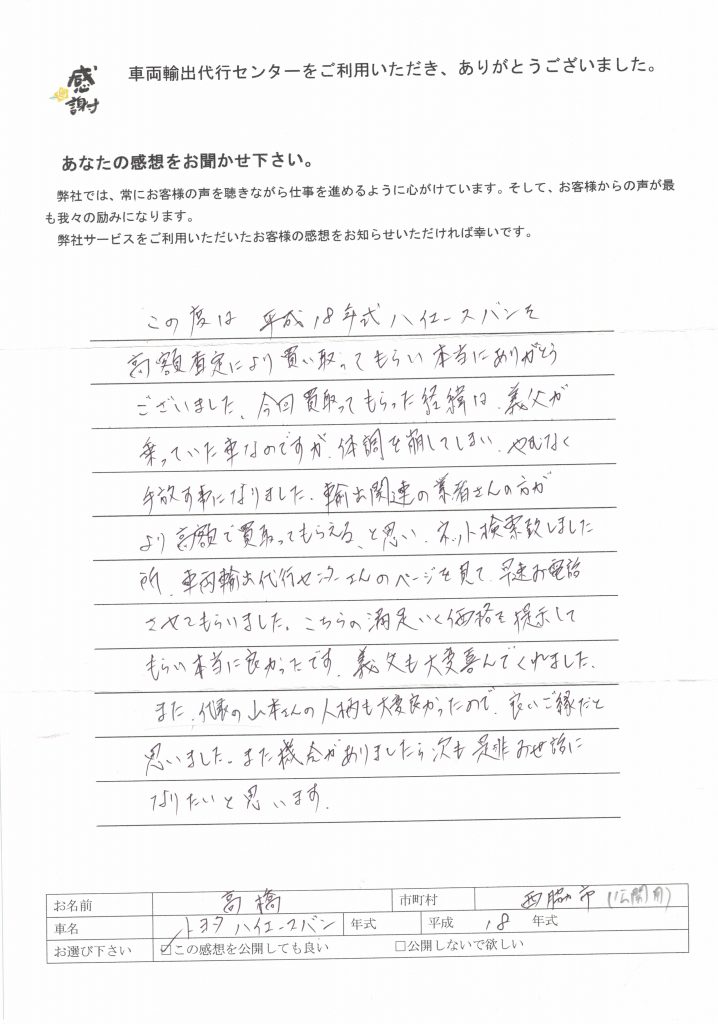 感謝
車両輸出代行センターをご利用いただき、ありがとうございました。
あなたの感想をお聞かせ下さい。
弊社では、常にお客様の声を聴きながら仕事を進めるように心がけています。そして、お客様からの声が最
も我々の励みになります。
弊社サービスをご利用いただいたお客様の感想をお知らせいただければ幸いです。
この度は 平成18年式ハイエースバンを
高額査定により買い取ってもらい本当にありがとう
ございました。今回買取ってもらった経緯は、義父が
乗っていた車なのですが、体調を崩してしまい、やむなく
手放す事になりました。輸出関連の業者さんの方が
より高額で買取ってもらえる、と思い、ネット検索致しました
所、車両輸出代行センターさんのページを見て、早速お電話
させてもらいました。こちらの満足いく価格を提示して
もらい本当に良かったです。義父も大変喜んでくれました。
また、代表の山本さんの人柄も大変良かったので、良いご縁だと
思いました。また機会がありましたら次も是非お世話に
なりたいと思います。
お名前 高橋 市町村 西脇市(公開用)
車名 トヨタハイエースバン 年式 平成 18 年式
お選び下さい ☑この感想を公開しても良い □公開しないで欲しい